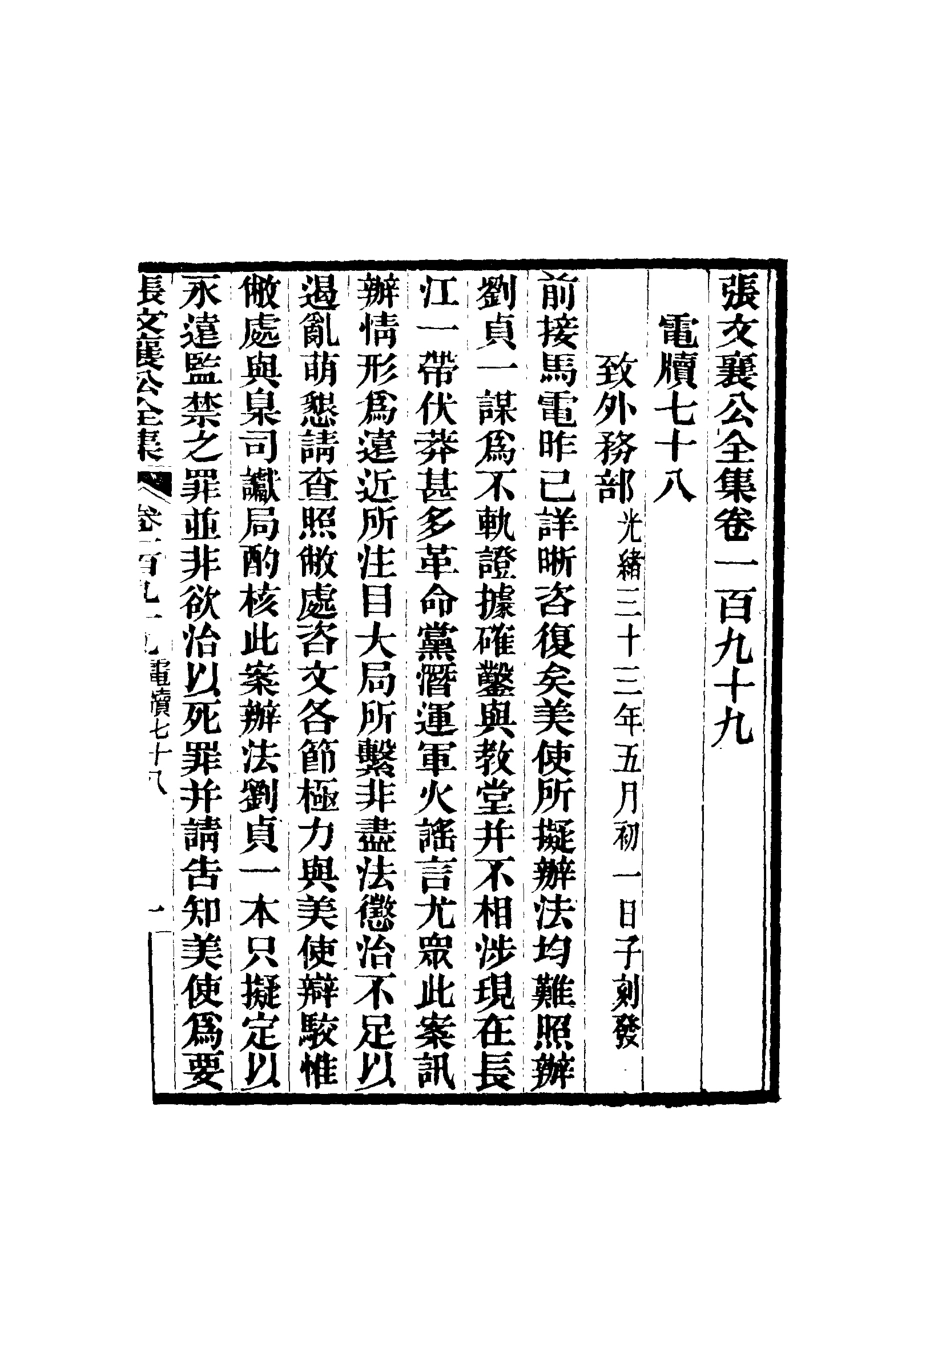 張文襄公全集卷一百九十九
電牘七十八
致外務部光緒三十三年五月初一日子刻發
前接馬電昨已詳晰咨復矣美使所擬辦法均難照辦
劉貞一謀爲不軌證據確鑿與教堂并不相涉現在長
江一帶伏莽甚多革命黨潛運軍火謠言尤眾此案訊
辦情形爲遠近所注目大局所繫非盡法懲治不足以
遏亂萌懇請查照敝處咨文各節極力與美使辯駮惟
敝處與臬司讞局酌核此案辦法劉貞一本只擬定以
永遠監禁之罪並非欲治以死罪并請告知美使爲要
張文襄公全集 卷一百九十九 電牘七十八 一